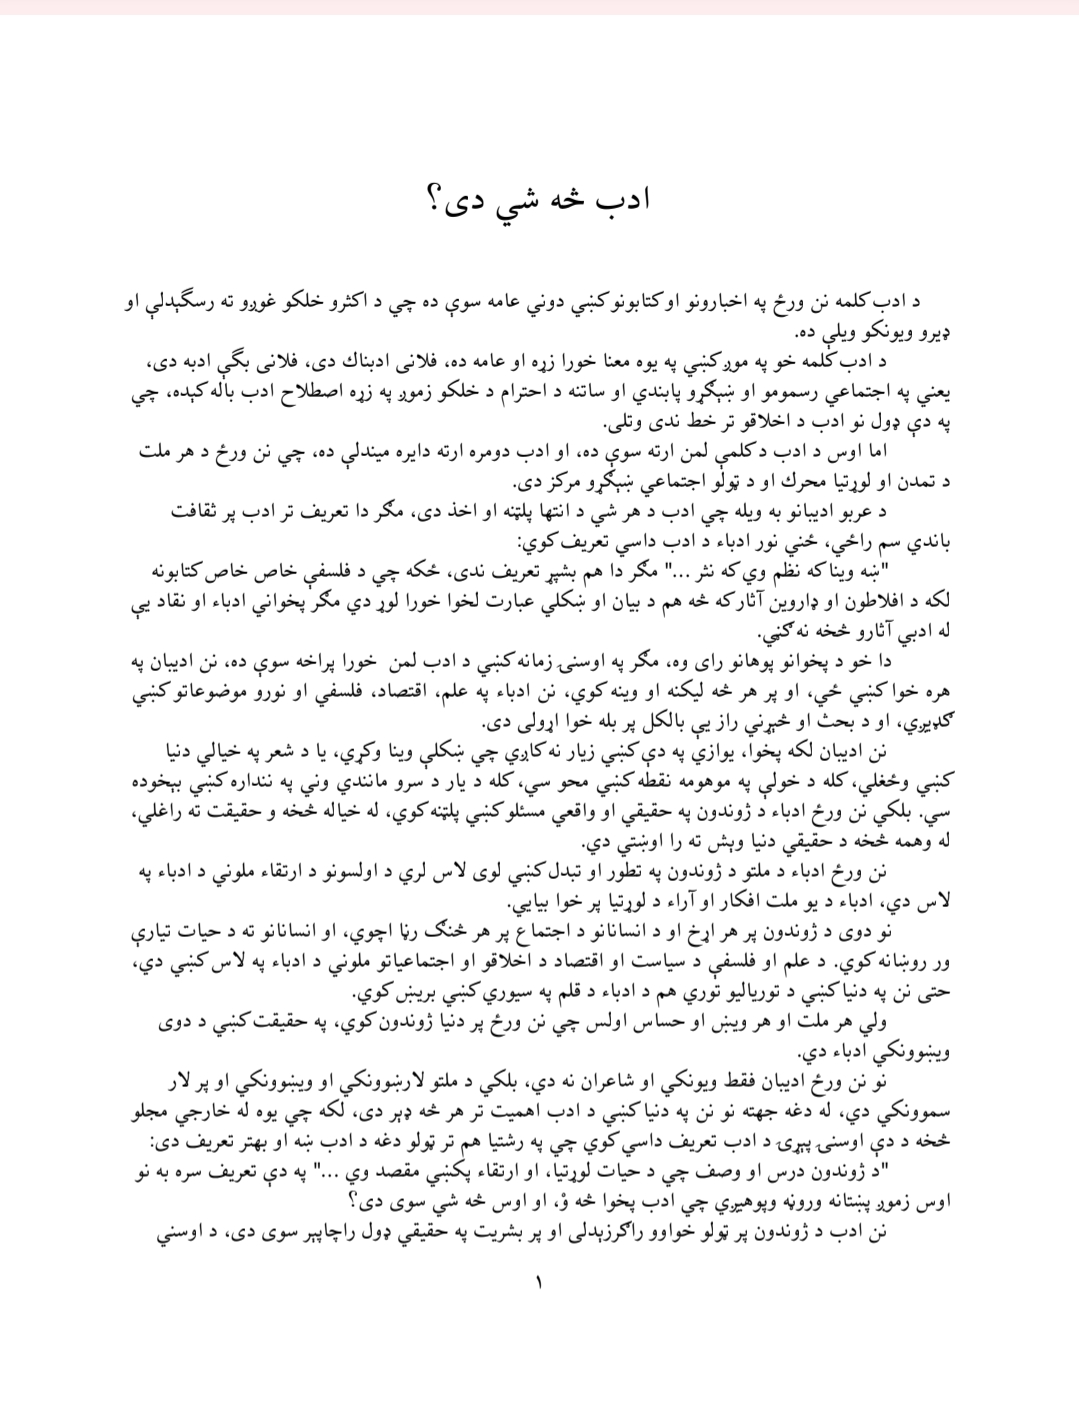 ادب څه شي دی؟
د ادب کلمه نن ورځ په اخبارونو او کتابونو کښي دوني عامه سوې ده چي د اکثرو خلکو غوږو ته رسگېدلې او
ډيرو ويونکو ويلې ده.
د ادب کلمه خو په موږ کښي په يوه معنا خورا زړه او عامه ده، فلانی ادبناك دی، فلانی بگې ادبه دی،
يعني په اجتماعي رسمومو او ښېګړو پابندي او ساتنه د احترام د خلکو زموږ په زړه اصطلاح ادب باله کېده، چي
په دې ډول نو ادب د اخلاقو تر خط ندی وتلی.
اما اوس د ادب د کلمې لمن ارته سوې ده، او ادب دومره ارته دايره ميندلې ده، چي نن ورځ د هر ملت
د تمدن او لوړتيا محرك او د ټولو اجتماعي ښېګړو مرکز دی.
د عربو اديبانو به ويله چي ادب د هر شي د انتها پلټنه او اخذ دی، مګر دا تعريف تر ادب پر ثقافت
باندي سم راځي، ځني نور ادباء د ادب داسي تعريف کوي:
"ښه وينا که نظم وي که نثر ..." مګر دا هم بشپړ تعريف ندی، ځکه چي د فلسفې خاص خاص کتابونه
لکه د افلاطون او ډاروين آثار که څه هم د بيان او ښکلي عبارت لخوا خورا لوړ دي مګر پخواني ادباء او نقاد يې
له ادبي آثارو څخه نه ګڼي.
دا خو د پخوانو پوهانو رای وه، مګر په اوسنۍ زمانه کښي د ادب لمن خورا پراخه سوې ده، نن اديبان په
هره خوا کښي ځي، او پر هر څه ليکنه او وينه کوي، نن ادباء په علم، اقتصاد، فلسفې او نورو موضوعاتو کښي
ګډيږي، او د بحث او څېړني راز يې بالکل پر بله خوا اړولی دی.
نن اديبان لکه پخوا، يوازي په دې کښي زيار نه کاږي چي ښکلې وينا وکړي، يا د شعر په خيالي دنيا
کښي وځغلي، کله د خولې په موهومه نقطه کښي محو سي، کله د يار د سرو مانندي وني په ننداره کښي بېخوده
سي. بلکي نن ورځ ادباء د ژوندون په حقيقي او واقعي مسئلو کښي پلټنه کوي، له خياله څخه و حقيقت ته راغلي،
له وهمه څخه د حقيقي دنيا وېش ته را اوښتي دي.
نن ورځ ادباء د ملتو د ژوندون په تطور او تبدل کښي لوی لاس لري د اولسونو د ارتقاء ملوني د ادباء په
لاس دي، ادباء د يو ملت افکار او آراء د لوړتيا پر خوا بيايي.
نو دوی د ژوندون پر هر اړخ او د انسانانو د اجتماع پر هر څنګ رڼا اچوي، او انسانانو ته د حيات تيارې
ور روښانه کوي. د علم او فلسفې د سياست او اقتصاد د اخلاقو او اجتماعياتو ملوني د ادباء په لاس کښي دي،
حتی نن په دنيا کښي د تورياليو توري هم د ادباء د قلم په سيوري کښي برېښ کوي.
ولي هر ملت او هر ويښ او حساس اولس چي نن ورځ پر دنيا ژوندون کوي، په حقيقت کښي د دوی
ويښوونکي ادباء دي.
نو نن ورځ اديبان فقط ويونکي او شاعران نه دي، بلکي د ملتو لارښوونکي او ويښوونکي او پر لار
سموونکي دي، له دغه جهته نو نن په دنيا کښي د ادب اهميت تر هر څه ډېر دی، لکه چي يوه له خارجي مجلو
څخه د دې اوسنۍ پېړۍ د ادب تعريف داسي کوي چي په رشتيا هم تر ټولو دغه د ادب ښه او بهتر تعريف دی:
"د ژوندون درس او وصف چي د حيات لوړتيا، او ارتقاء پکښي مقصد وي ..." په دې تعريف سره به نو
اوس زموږ پښتانه وروڼه وپوهيږي چي ادب پخوا څه وْ، او اوس څه شي سوی دی؟
نن ادب د ژوندون پر ټولو خواوو راګرزېدلی او پر بشريت په حقيقي ډول راچاپېر سوی دی، د اوسني
١